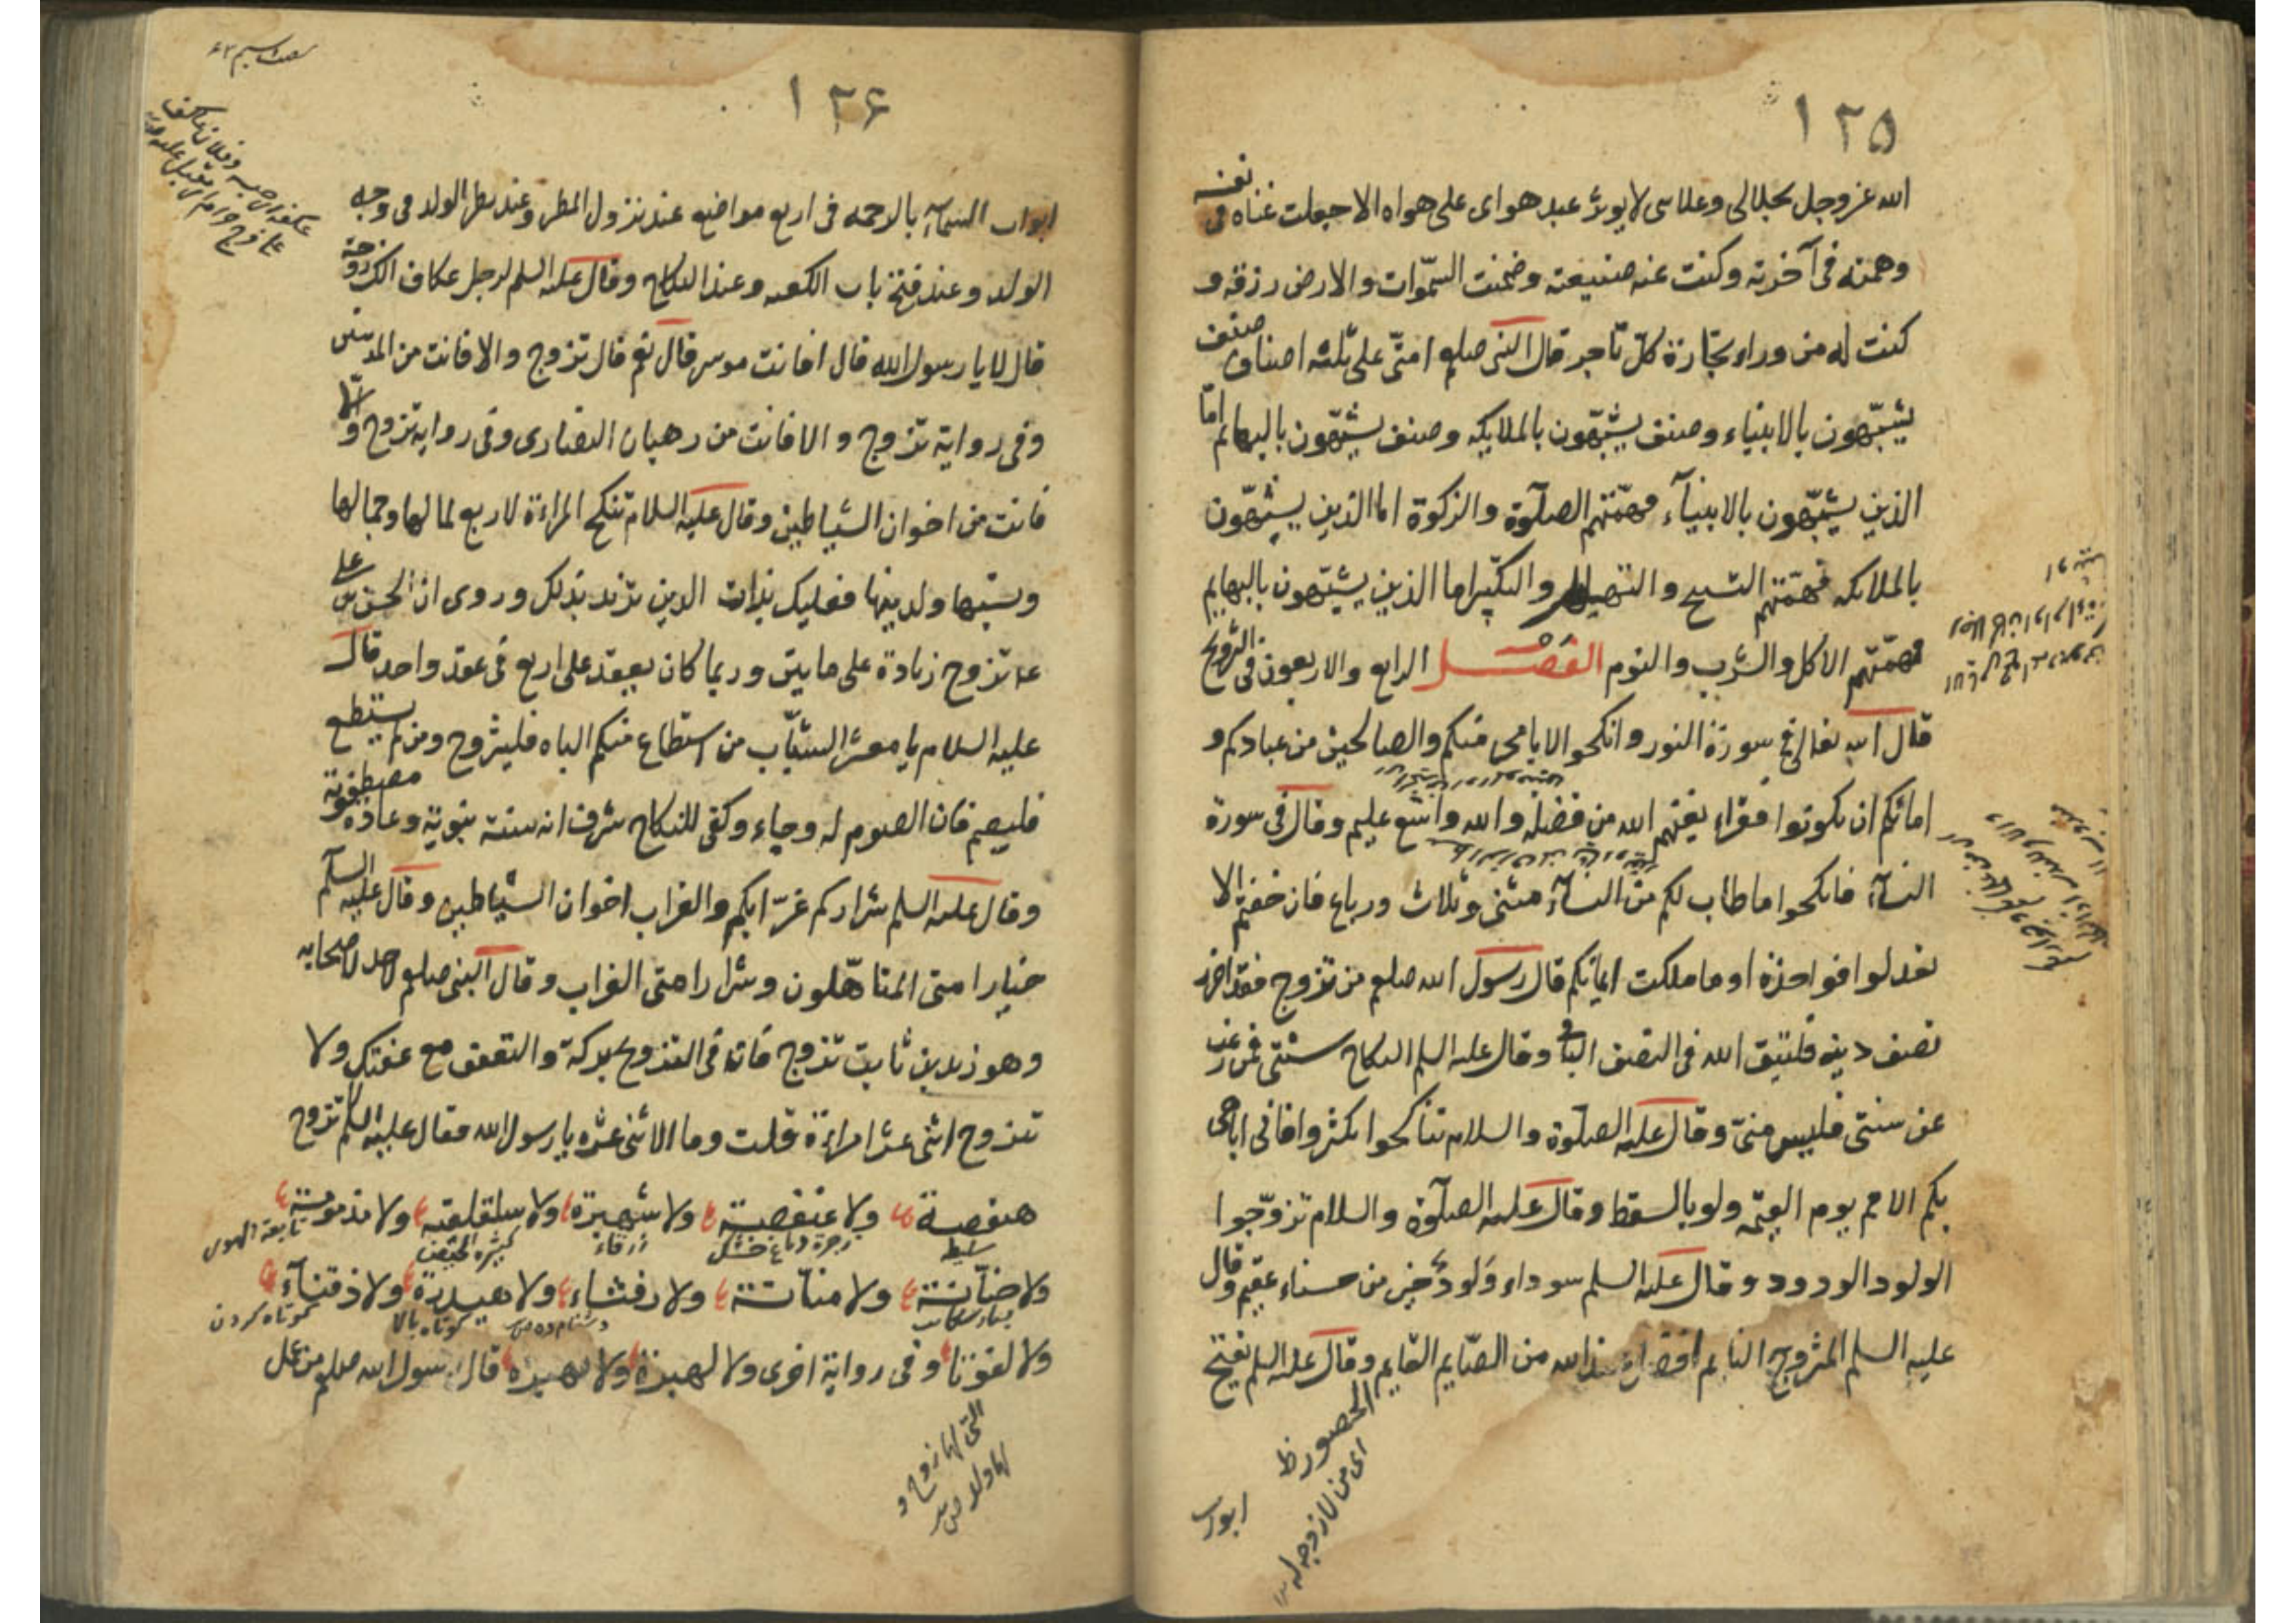 ١٢٥
الله عز وجل بجلالى وعلاسى لا يوثر عبد هواى على هواه الا جعلت غناه فى نفسه
وهمته فى آخرته وكنت عنه ضيعته وضمنت السموات والارض رزقه و
كنت له من وراء تجارة كل تاجر قال النبى صلعم امتى على ثلثه اصناف صنف
يشبهون بالانبياء وصنف يشبهون بالملايكه وصنف يشبهون بالبهايم اما
الذين يشبهون بالانبيآء فهمتهم الصلوة والزكوة اما الذين يشبهون
بالملائكه فهمتهم التسبيح والتهليل والتكبير اما الذين يشبهون بالبهايم
فهمتهم الاكل والشرب والنوم الفصل الرابع والاربعون فى التزويج
قال الله تعالى فى سورة النور وانكحوا الايامى منكم والصالحين من عبادكم و
امائكم ان يكونوا فقراء يغنهم الله من فضله والله واسع عليم وقال فى سورة
النسآء فانكحوا ما طاب لكم من النسآء مثنى وثلاث ورباع فان خفتم الا
تعدلوا فواحدة او ما ملكت ايمانكم قال رسول الله صلعم من تزوج فقد احرز
نصف دينه فليتق الله فى النصف الباقى وقال عليه السلم النكاح سنتى فمن رغب
عن سنتى فليس منى وقال عليه الصلوة والسلام تناكحوا تكثروا فانى اباهى
بكم الامم يوم القيمه ولو بالسقط وقال عليه الصلوة والسلام تزوجوا
الولود الودود وقال عليه السلم سوداء ولود خير من حسناء عقيم وقال
عليه السلم المتزوج النايم افضل عند الله من الصايم القايم وقال عليه السلم يفتح
اى من لا زوجه له
ابواب
١٢۶
ابواب السمآء بالرحمه فى اربع مواضع عند نزول المطر وعند نظر الولد فى وجه
الولد وعند فتح باب الكعبه وعند النكاح وقال عليه السلم لرجل عكاف الك زوجة
قال لا يا رسول الله قال افانت موسر قال نعم قال تزوج والا فانت من المذنبين
وفى رواية تزوج والا فانت من رهبان النصارى وفى رواية تزوج والا
فانت من اخوان الشياطين وقال عليه السلام تنكح المراءة لاربع لمالها وجمالها
ونسبها ولدينها فعليك بذات الدين تزند بذلك وروى ان الحسن بن على
ع تزوج زيادة على مايتين وربما كان يعقد على اربع فى عقد واحد قال
عليه السلام يا معشر الشباب من استطاع منكم الباه فليتزوج ومن لم يستطع
فليصم فان الصوم له وجاء وكفى للنكاح شرف انه سنة نبوية وعادة مصطفوية
وقال عليه السلم شراركم عزابكم والعزاب اخوان الشياطين وقال عليه السلم
خيار امتى المتاهلون وشرار امتى العزاب وقال النبى صلعم لاحد لاصحابه
وهو زيد بن ثابت تزوج فان فى التزويج بركة والتعفف مع عفتك ولا
تتزوج اثنى عشر امراءة قلت وما الاثنى عشره يا رسول الله فقال عليه السلم لا تزوج
هنفصة ولا عنفصية ولا شهبرة ولا سلقلقية ولا مذمومة
سليطه
زرقاء
كثيرة الحيض
ولا حنانة ولا منانة ولا رفثاء ولا هيدرة ولا ذقنآء
كوتاه بالا
كوتاه كردن
ولا لفوتا وفى رواية اخرى ولا لهبرة ولا نهبرة قال رسول الله صلعم من عمل
التى لها زوج و
لها ولد